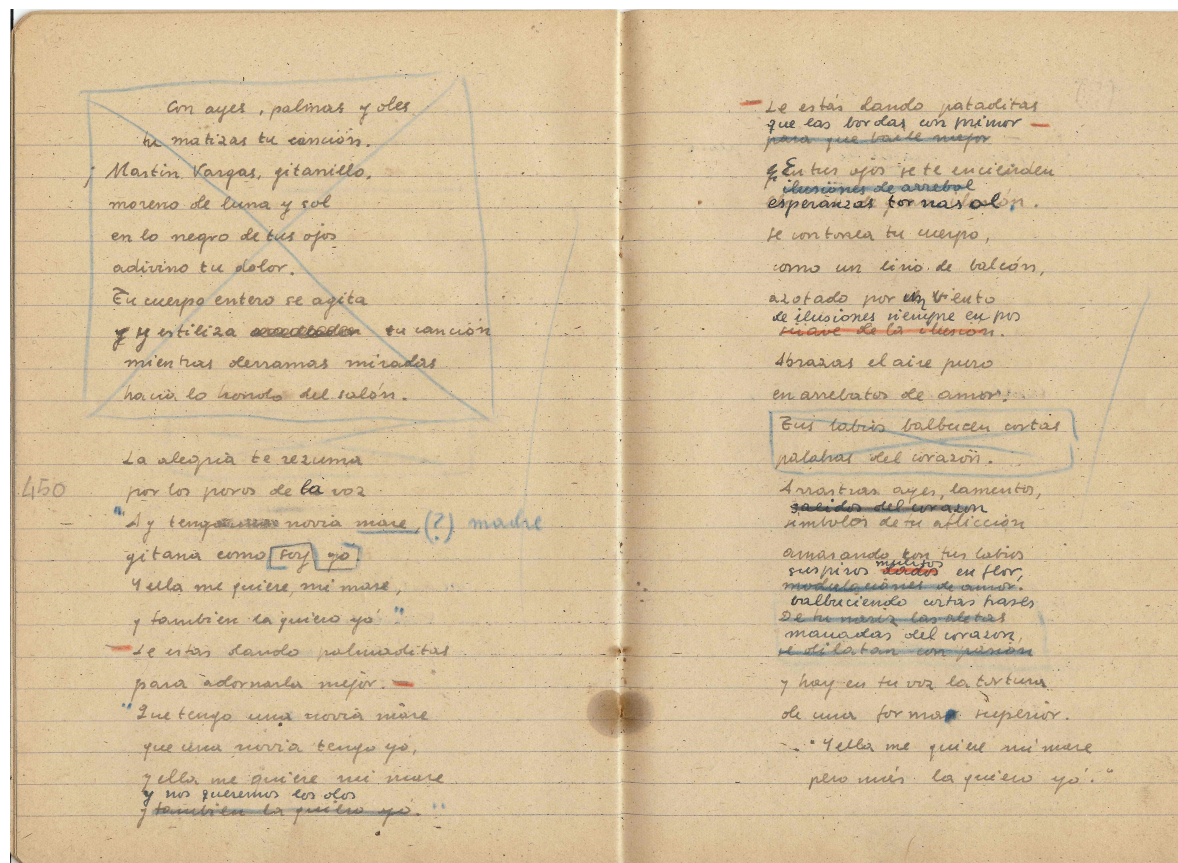 Con ayes, palmas y oles
tu matizas tu canción.
¡ Martin Vargas, gitanillo,
moreno de luna y sol
en lo negro de tus ojos
adivino tu dolor.
Tu cuerpo entero se agita
y estiliza tu canción
mientras derramas miradas
hacia lo hondo del salón.
La alegria te rezuma
450
por los poros de la voz
"Ay tengo novia mare, (?) madre
gitana como soy yo.
Y ella me quiere, mi mare,
y tambien la quiero yó"
— Le estás dando palmaditas
para adornarla mejor. —
"Que tengo una novia mare
que una novia tengo yo,
y ella me quiere mi mare
y nos queremos los dos
y tambien la quiero yo."
— Le estás dando pataditas
que las bordas con primor —
para que baile mejor
y En tus ojos se te encienden
ilusiones de arrebol
esperanzas tornasol.
se contonea tu cuerpo,
como un lirio de balcón,
azotado por un viento
de ilusiones siempre en pos
suave de la ilusión.
Abrazas el aire puro
en arrebatos de amor.
Tus labios balbucen cortas
palabras del corazón.
Arrastras ayes, lamentos,
salidos del corazon
simbolos de tu aflicción
amasando con tus labios
suspiros en flor,
modulaciones de amor.
balbuciendo cortas frases
De tu nariz las aletas
manadas del corazon,
se dilatan con pasión
y hay en tu voz la tortura
de una forma superior.
"Y ella me quiere mi mare
pero más la quiero yó."